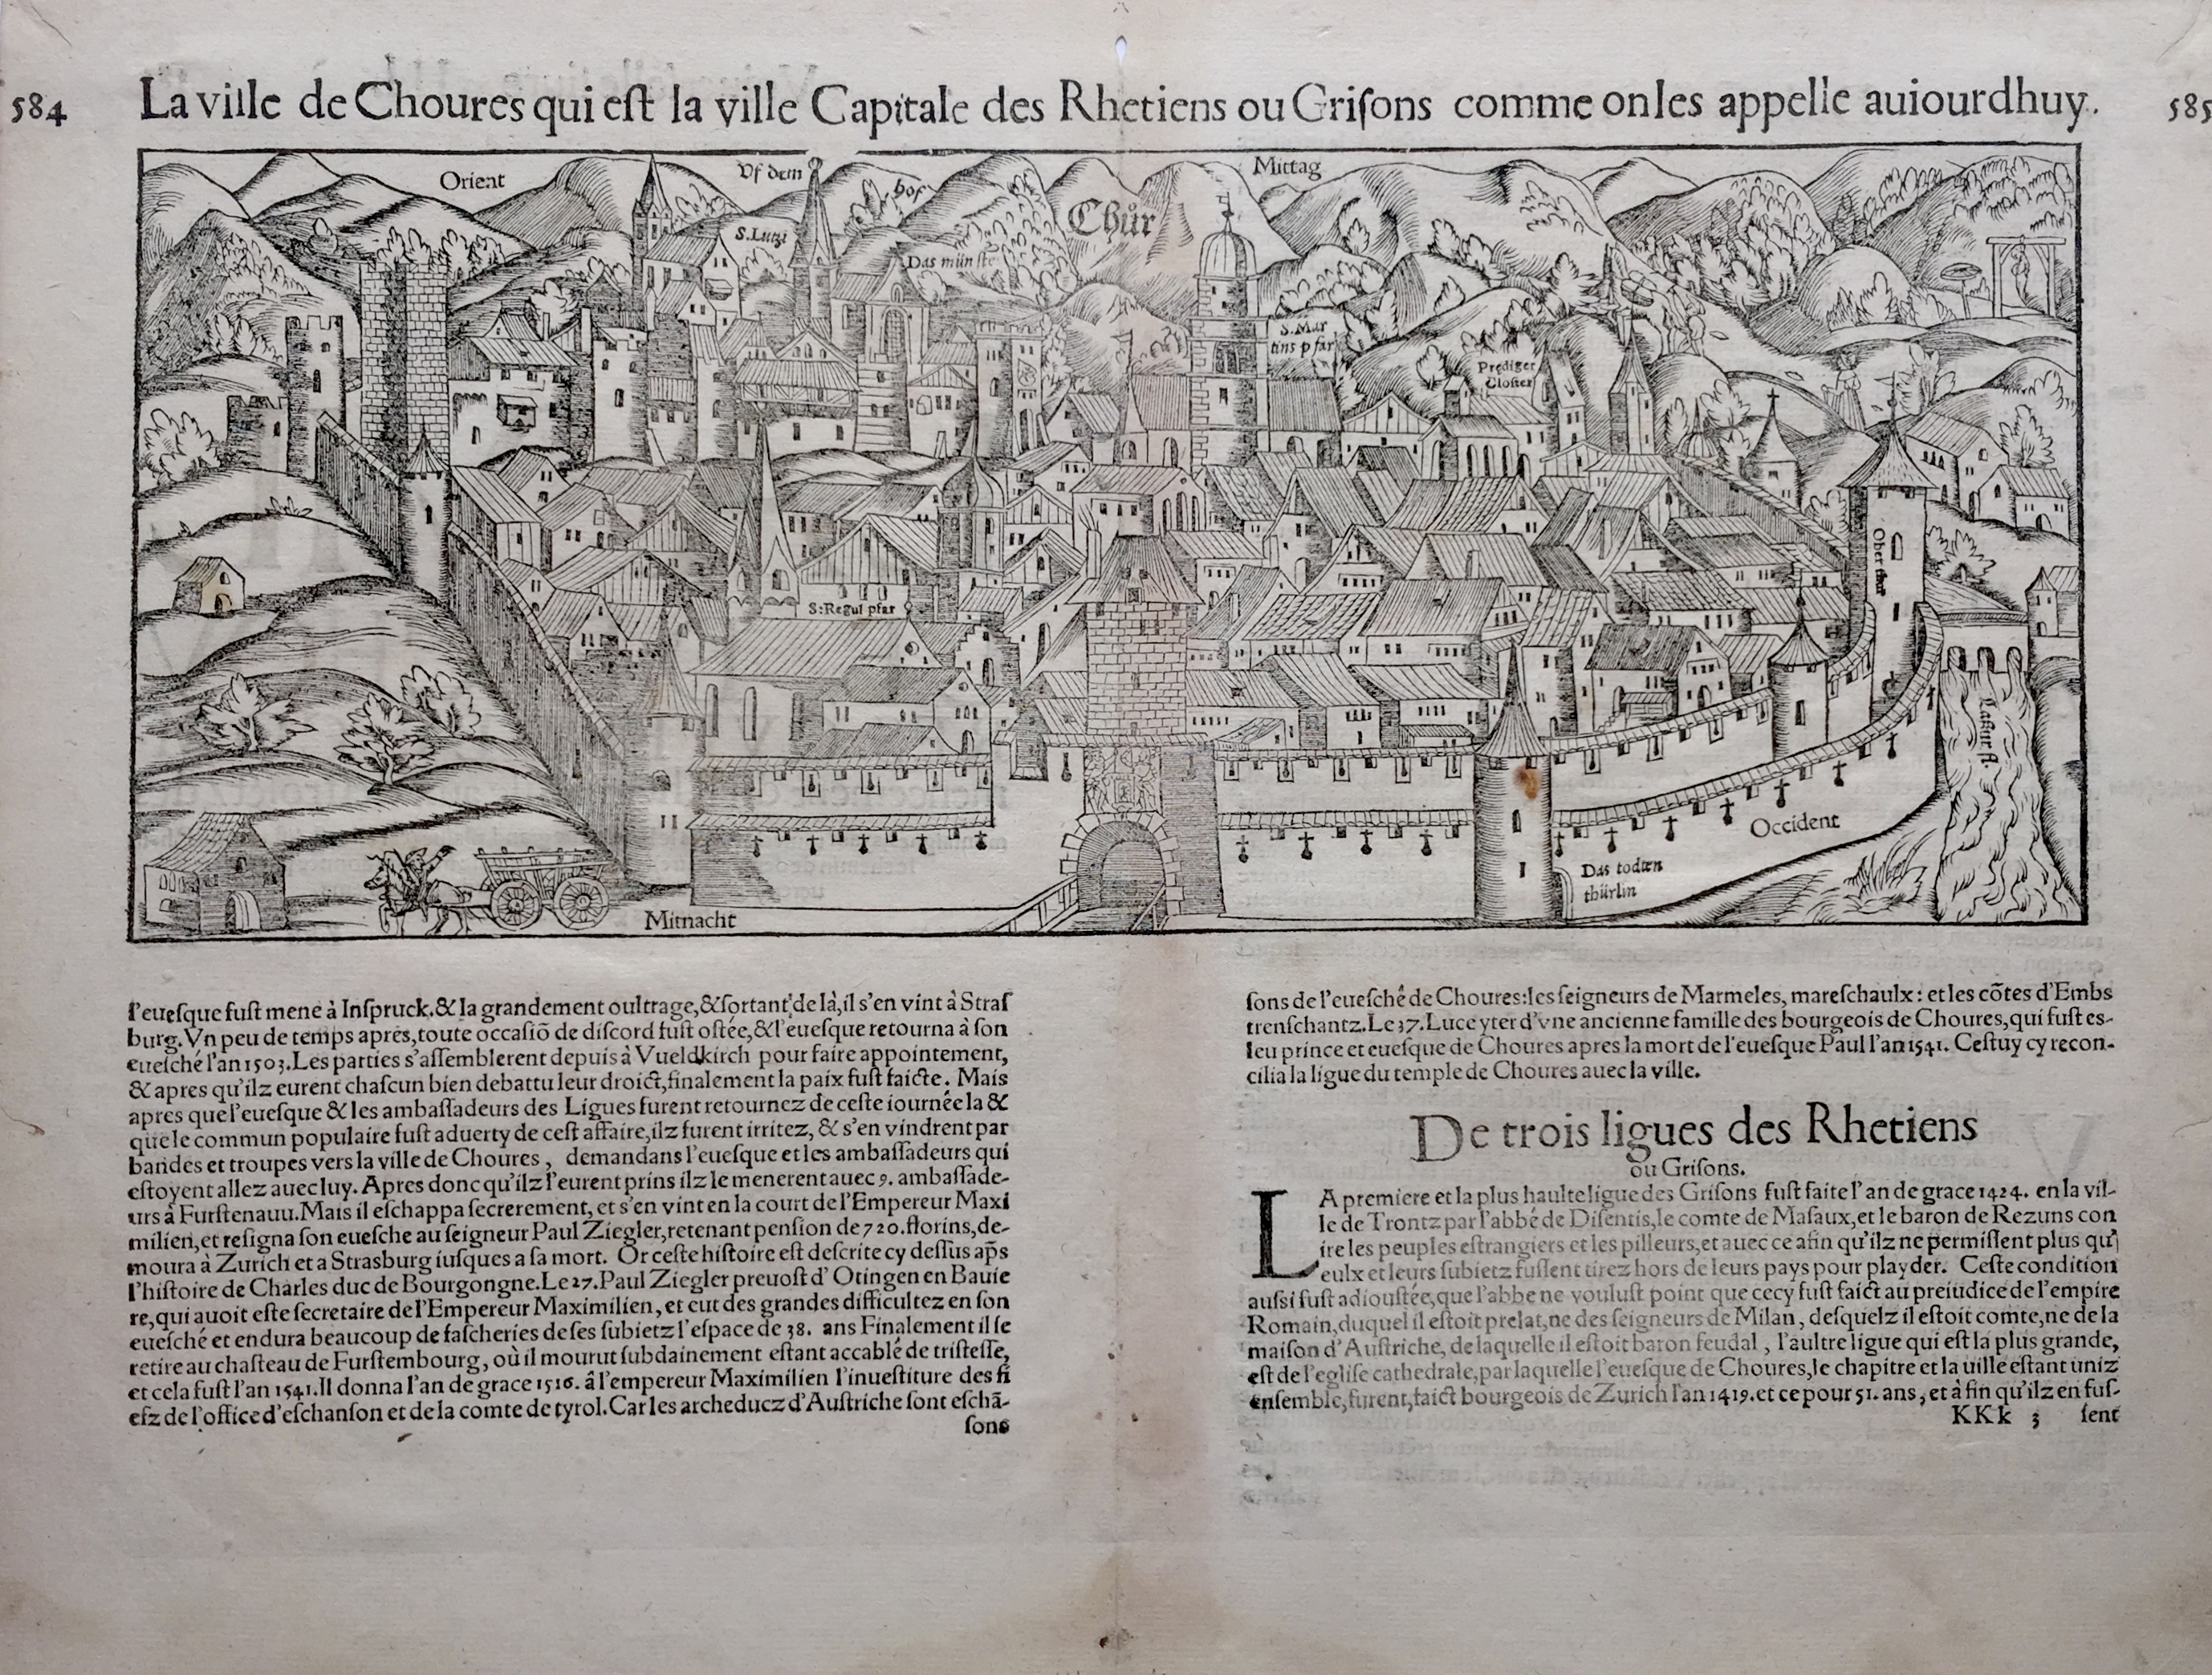 584
La ville de Choures qui eſt la ville Capitale des Rhetiens ou Griſons comme on les appelle auiourdhuy.
585
Orient
Vf dem
hof
Mittag
Chůr
S. Luzi
Das münſte
S. Mar
tins pfar
Prediger
Cloſter
Ober thor
S: Regul pfar
Occident
Das todten
thürlin
Mitnacht
l'eueſque fuſt mené à Inſpruck.& la grandement oultrage,& ſortant de là,il s'en vint à Straſ
burg. Vn peu de temps apres,toute occaſiõ de diſcord fuſt oſtée,& l'eueſque retourna à ſon
eueſché l'an 1503. Les parties s'aſſemblerent depuis à Vueldkirch pour faire appointement,
& apres qu'ilz eurent chaſcun bien debattu leur droict,finalement la paix fuſt faicte. Mais
apres que l'eueſque & les ambaſſadeurs des Ligues furent retournez de ceſte iournée la &
que le commun populaire fuſt aduerty de ceſt affaire,ilz furent irritez, & s'en vindrent par
bandes et troupes vers la ville de Choures, demandans l'eueſque et les ambaſſadeurs qui
eſtoyent allez auec luy. Apres donc qu'ilz l'eurent prins ilz le menerent auec 9. ambaſſade-
urs à Furſtenauu. Mais il eſchappa ſecrerement, et s'en vint en la court de l'Empereur Maxi
milien,et reſigna ſon eueſche au ſeigneur Paul Ziegler,retenant penſion de 720. florins,de-
moura à Zurich et a Strasburg iuſques a ſa mort. Or ceſte hiſtoire eſt deſcrite cy deſſus ap̃s
l'hiſtoire de Charles duc de Bourgongne. Le 27. Paul Ziegler preuoſt d'Otingen en Bauie
re,qui auoit eſte ſecretaire de l'Empereur Maximilien, et eut des grandes difficultez en ſon
eueſché et endura beaucoup de faſcheries de ſes ſubietz l'eſpace de 38. ans Finalement il ſe
retire au chaſteau de Furſtembourg, où il mourut ſubdainement eſtant accablé de triſteſſe,
et cela fuſt l'an 1541. Il donna l'an de grace 1516. â l'empereur Maximilien l'inueſtiture des fi
efz de l'office d'eſchanſon et de la comte de tyrol. Car les archeducz d'Auſtriche ſont eſchã-
ſons
ſons de l'eueſché de Choures:les ſeigneurs de Marmeles, mareſchaulx: et les cõtes d'Embs
trenſchantz. Le 37. Luce yter d'vne ancienne famille des bourgeois de Choures,qui fuſt eſ-
leu prince et eueſque de Choures apres la mort de l'eueſque Paul l'an 1541. Ceſtuy cy recon-
cilia la ligue du temple de Choures auec la ville.
De trois ligues des Rhetiens
ou Griſons.
LA premiere et la plus haulte ligue des Griſons fuſt faite l'an de grace 1424. en la vil-
le de Trontz par l'abbé de Diſentis,le comte de Maſaux,et le baron de Rezuns con
ire les peuples eſtrangiers et les pilleurs,et auec ce afin qu'ilz ne permiſſent plus qu'
eulx et leurs ſubietz fuſſent tirez hors de leurs pays pour playder. Ceſte condition
auſsi fuſt adiouſtée,que l'abbe ne vouluſt point que cecy fuſt faict au preiudice de l'empire
Romain,duquel il eſtoit prelat,ne des ſeigneurs de Milan, deſquelz il eſtoit comte,ne de la
maiſon d'Auſtriche, de laquelle il eſtoit baron feudal, l'aultre ligue qui eſt la plus grande,
eſt de l'egliſe cathedrale,par laquelle l'eueſque de Choures,le chapitre et la uille eſtant uniz
enſemble,furent,faict bourgeois de Zurich l'an 1419. et ce pour 51. ans, et à fin qu'ilz en fuſ-
KKk 3 ſent